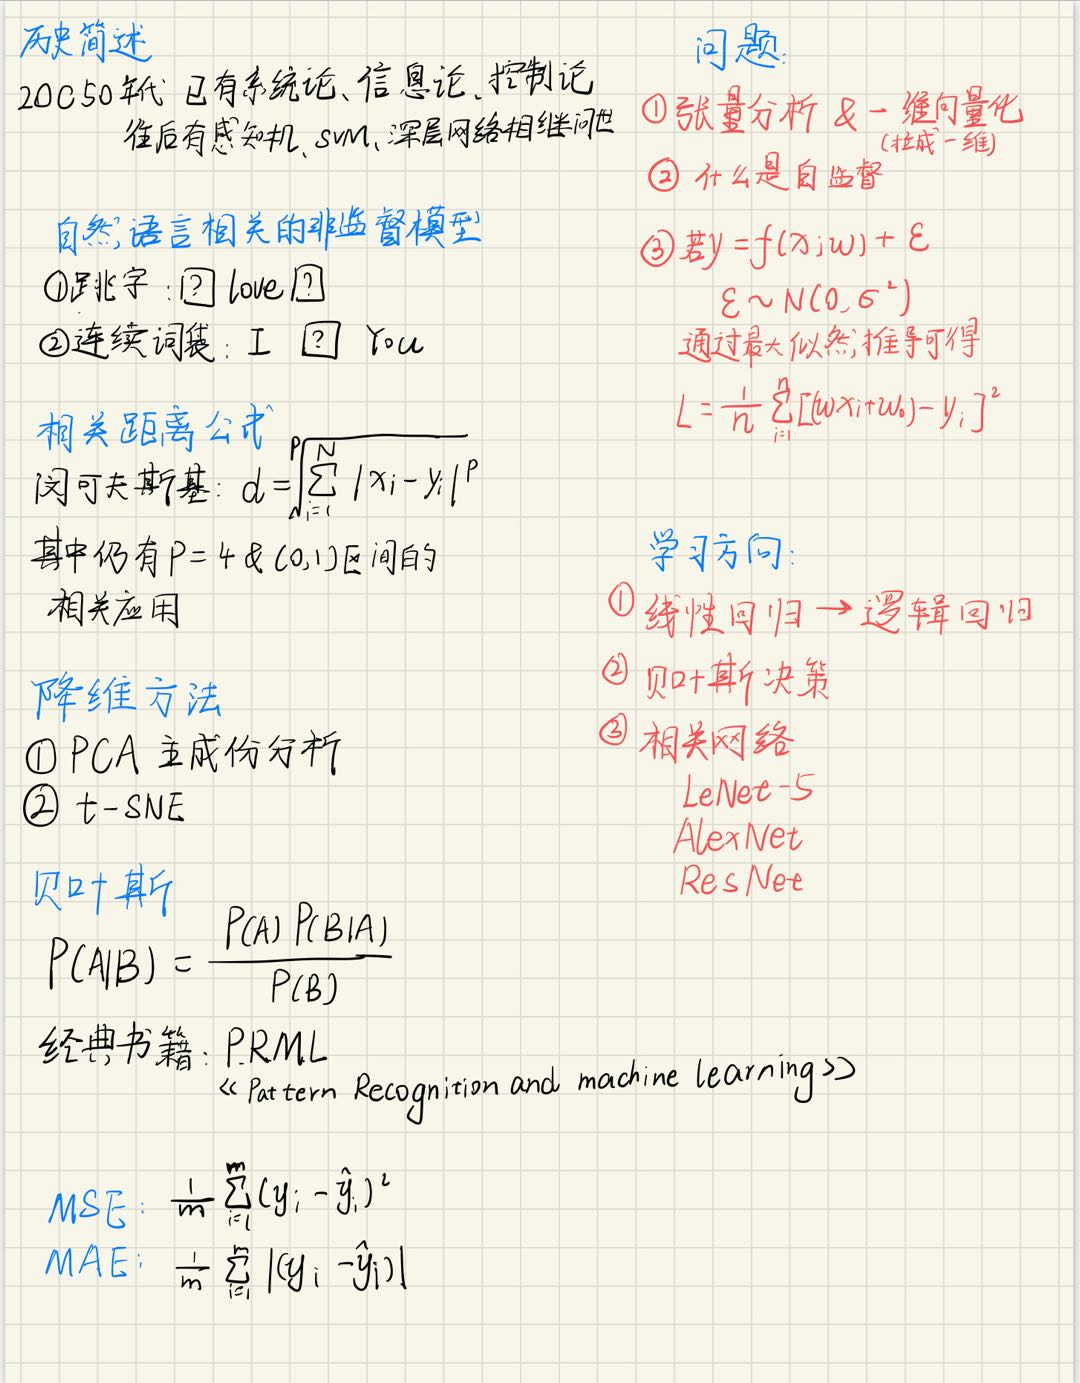 历史简述
20C50年代 已有系统论、信息论、控制论
往后有感知机、SVM、深层网络相继问世
自然语言相关的非监督模型
①跳字：[?] love [?]
②连续词袋：I [?] You
相关距离公式
闵可夫斯基：d = \sqrt[p]{\sum_{i=1}^{N} |x_i - y_i|^p}
其中仍有P=4 & (0,1)区间的
相关应用
降维方法
① PCA 主成份分析
② t-SNE
贝叶斯
P(A|B) = \frac{P(A) P(B|A)}{P(B)}
经典书籍：PRML
《Pattern Recognition and machine learning》
MSE: \frac{1}{m} \sum_{i=1}^{m} (y_i - \hat{y}_i)^2
MAE: \frac{1}{m} \sum_{i=1}^{m} |(y_i - \hat{y}_i)|
问题:
①张量分析 & 一维向量化
(拉成一维)
② 什么是自监督
③ 若y = f(x;w) + ε
ε ~ N(0, σ²)
通过最大似然,推导可得
L = \frac{1}{n} \sum_{i=1}^{n} [(wx_i+w_0) - y_i]^2
学习方向:
① 线性回归 → 逻辑回归
② 贝叶斯决策
③ 相关网络
LeNet-5
AlexNet
ResNet